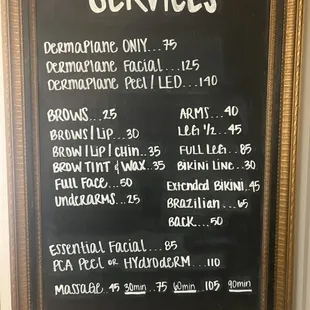 SERVICES
DERMAPLANE ONLY...75
DERMAPLANE FACIAL...125
DERMAPLANE PEEL/LED...140
BROWS...25
BROWS/LIP...30
BROW/LIP/CHIN..35
BROW TINT & WAX..35
FULL FACE...50
UNDERARMS...25
ARMS...40
LEG 1/2...45
FULL LEG...85
BIKINI LINE..30
EXTENDED BIKINI.45
BRAZILIAN...65
BACK....50
ESSENTIAL FACIAL...85
PCA PEEL OR HYDRODERM...110
MASSAGE 45 30min 75 60min 105 90min